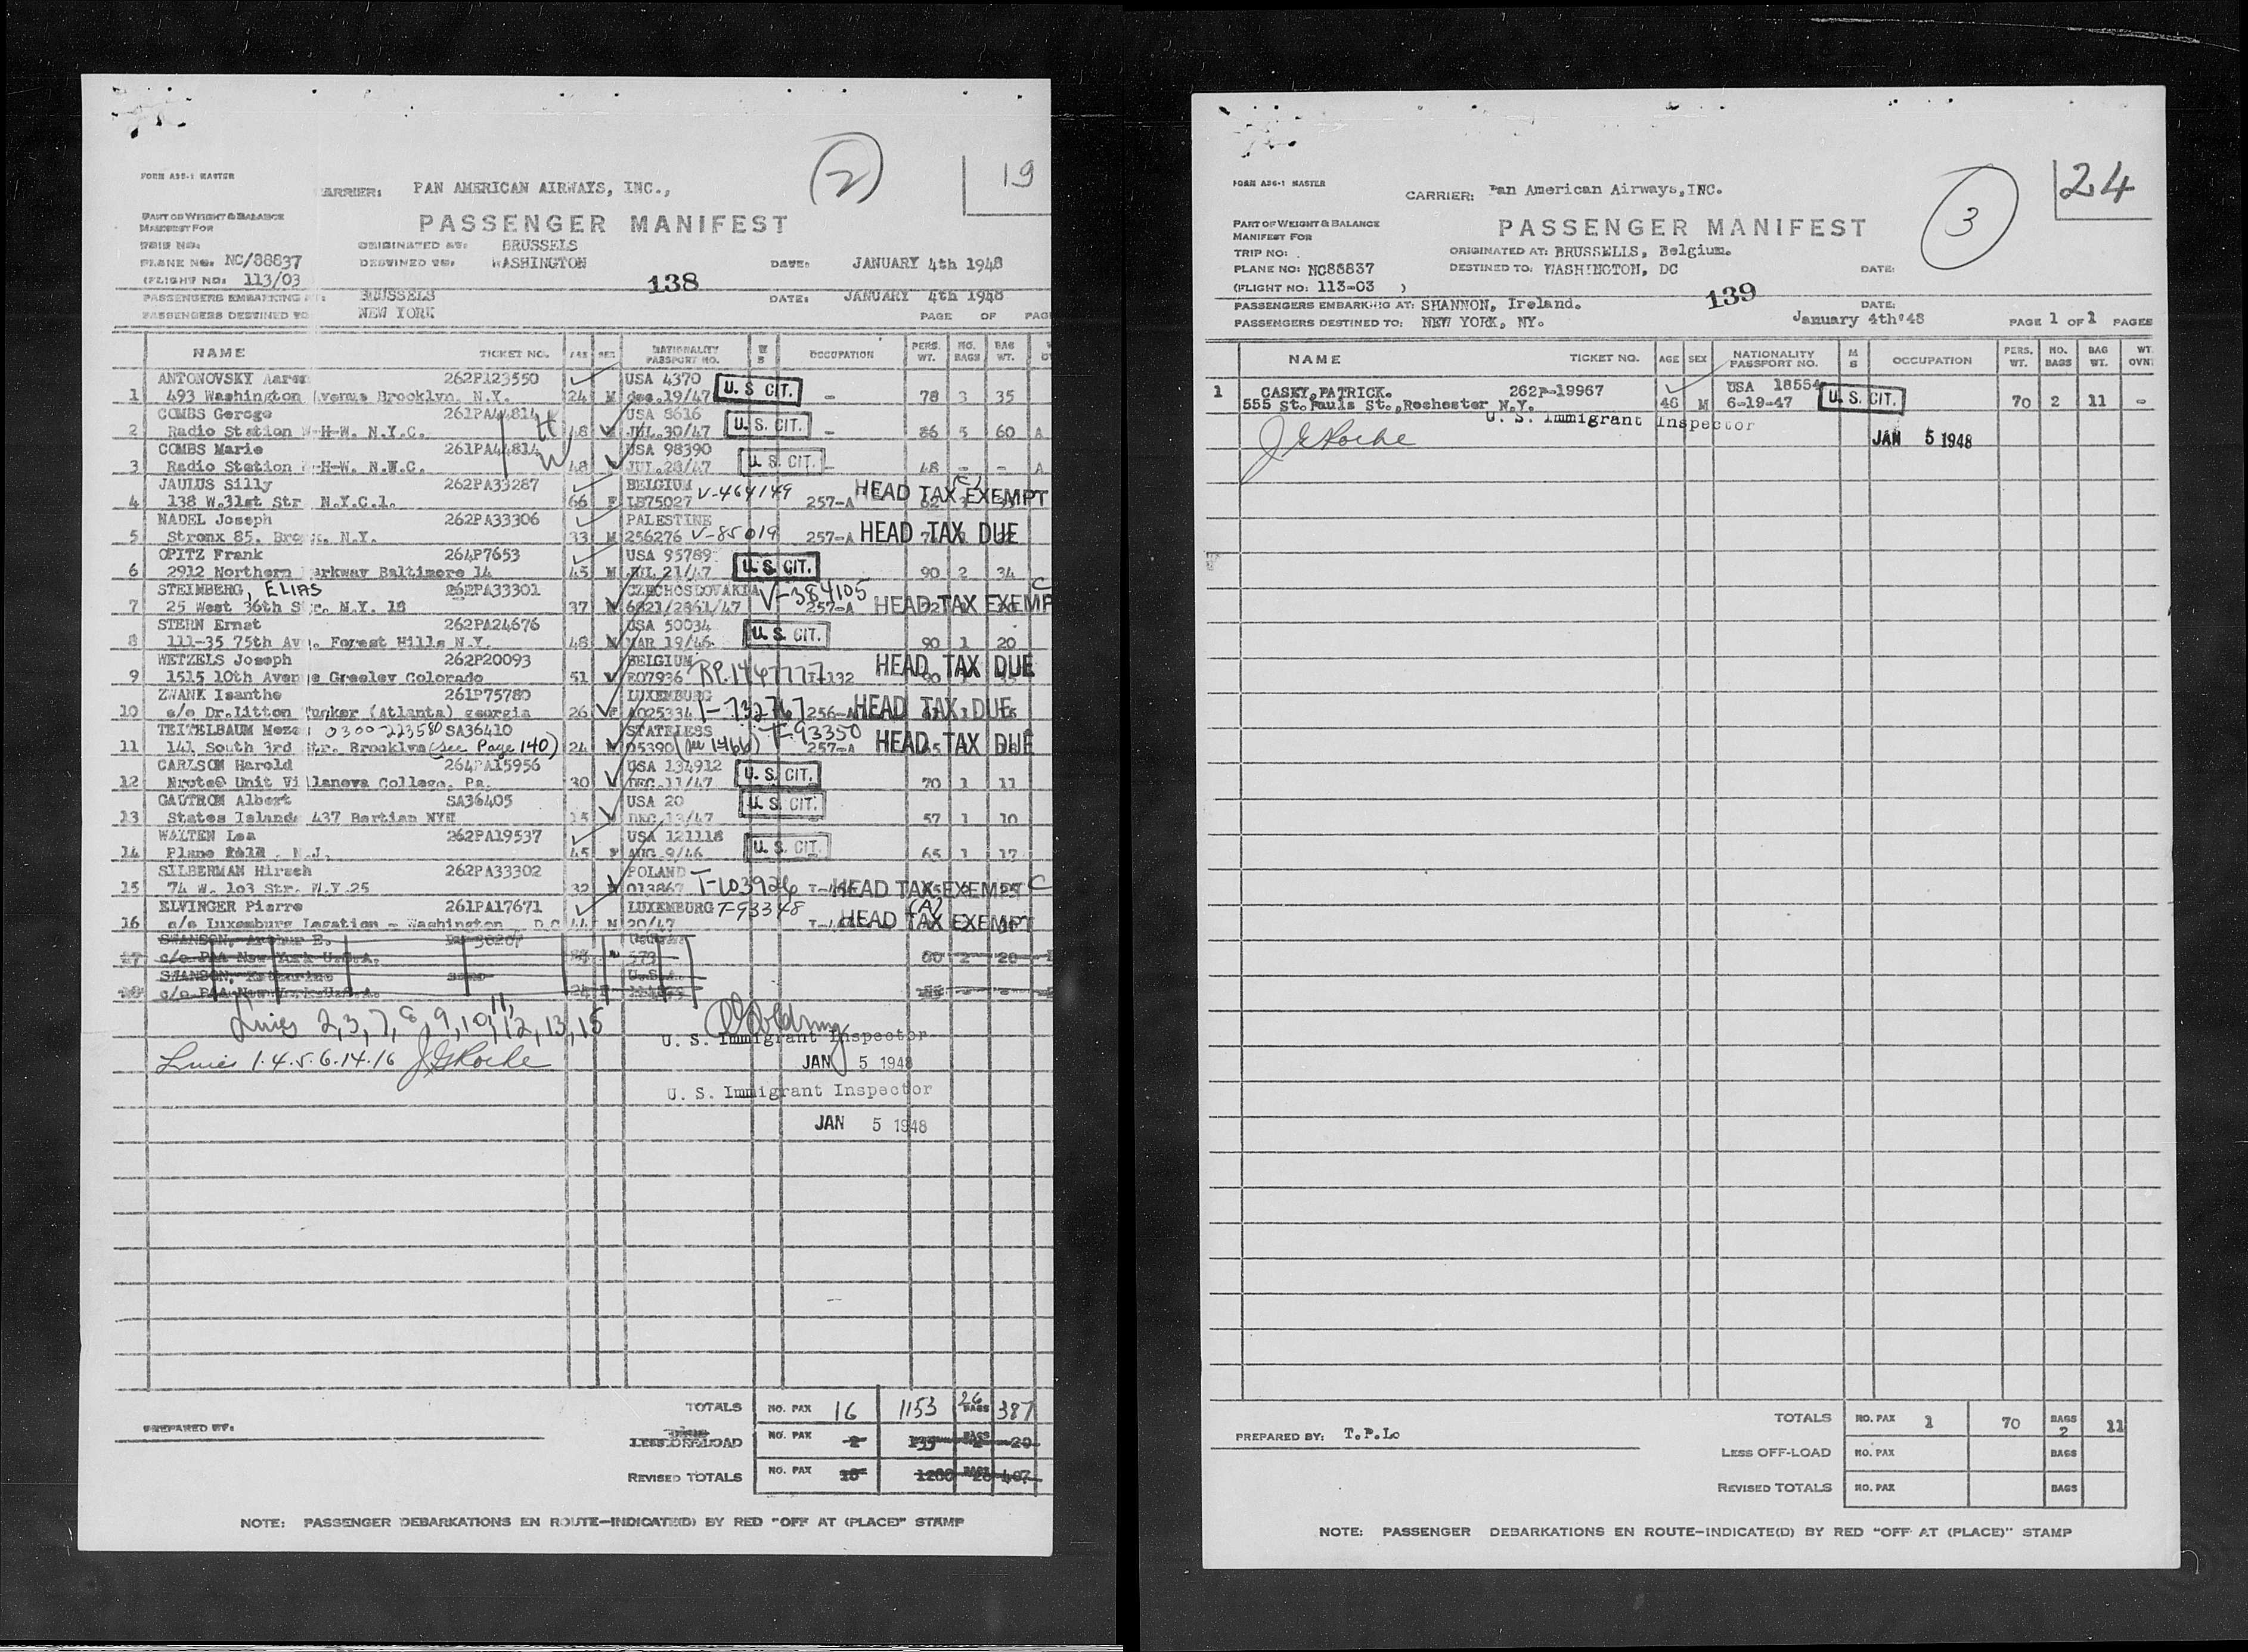 2
19
FORM A36-1 MASTER
ARRIER: PAN AMERICAN AIRWAYS, INC.,
PART OF WEIGHT & BALANCE
MANIFEST FOR
PASSENGER MANIFEST
TRIP NO:
ORIGINATED AT: BRUSSELS
PLANE NO. NC/88837
DESTINED TO: WASHINGTON
DATE: JANUARY 4th 1948
(FLIGHT NO: 113/03
138
PASSENGERS EMBARKING AT: BRUSSELS
DATE: JANUARY 4th 1948
PASSENGERS DESTINED TO NEW YORK
PAGE OF PAG
NAME TICKET NO. AGE SEX NATIONALITY PASSPORT NO. M S OCCUPATION PERS. WT. NO. BAGS BAG WT.
ANTONOVSKY Aaron 262PA23550 USA 4370 U. S CIT.
1 493 Washington Avenue Brooklyn, N.Y. 24 M dec.19/47 - 78 3 35
COMBS Geroge 261PA44814 H USA 8616 U. S. CIT.
2 Radio Station W-H-W. N.Y.C. 48 JUL.30/47 - 86 5 60 A
COMBS Marie 261PA44814 W USA 98390 U. S. CIT.
3 Radio Station W-H-W. N.W.C. 48 JUL.28/47 - 48 - - A
JAULUS Silly 262PA33287 BELGIUM V-464149 HEAD TAX EXEMPT
4 138 W.31st Str N.Y.C.1. 66 F LB75027 257-A
NADEL Joseph 262PA33306 PALESTINE
5 Stronx 85. N.Y. 33 M 256276 V-85019 257-A HEAD TAX DUE
OPITZ Frank 264P7653 USA 95789 U. S. CIT.
6 2912 Northern Parkway Baltimore 14 45 M JUL 21/47 90 2 34
STEINBERG, ELIAS 262PA33301 CZECHOSLOVAKIA V-384105 C
7 25 West 36th Str. N.Y. 18 37 M 6821/2861/47 257-A HEAD TAX EXEMP
STERN Ernst 262PA24676 USA 50034 U. S. CIT.
8 111-35 75th Av. Forest Hills N.Y. 48 M MAR 19/46 90 1 20
WETZELS Joseph 262P20093 BELGIUM RP.1467777 HEAD TAX DUE
9 1515 10th Avenue Greeley Colorado 51 E07936 I-132 90
ZWANK Isanthe 261P75780 LUXEMBURG
10 c/o Dr.Litton Tucker (Atlanta) georgia 26 F A025334 T-732767 256-A HEAD TAX DUE
TEITELBAUM Mozes 0300-223580 SA36410 STATELESS T-93350
11 141 South 3rd Str. Brooklyn (see Page 140) 24 M 05390 257-A HEAD TAX DUE
CARLSON Harold 264PA15956 USA 134912 U. S. CIT.
12 Nrote@ Unit Villanova College. Pa. 30 DEC.11/47 70 1 11
GAUTROM Albert SA36405 USA 20 U. S CIT.
13 States Island 437 Bartian NYH 15 DEC.13/47 57 1 10
WALTEN Lea 262PA19537 USA 121118 U. S. CIT.
14 Plane N.J. 45 F AUG.9/46 65 1 17
SILBERMAN Hirsch 262PA33302 POLAND
15 74 W. 103 Str. N.Y.25 32 013867 T-103926 HEAD TAX EXEMPT C
ELVINGER Pierre 261PA17671 LUXEMBURG T-93348 (A)
16 c/o Luxemburg Legation - Washington D.C 44 M 20/47 HEAD TAX EXEMPT
SWANSON, Arthur E.
17 c/o PAA New York U.S.A. 573 80 2 20
SWANSON, Katherine U.S.A.
18 c/o PAA New York U.S.A.
Lines 2,3,7,8,9,10,11,12,13,15
U. S. Immigrant Inspector
Lines 1.4.5.6.14.16 J G Roche
JAN 5 1948
U. S. Immigrant Inspector
JAN 5 1948
TOTALS NO. PAX 16 1153 26 BAGS 387
PREPARED BY:
LESS OFF-LOAD NO. PAX 2 BAGS 20
REVISED TOTALS NO. PAX 18 BAGS 407
NOTE: PASSENGER DEBARKATIONS EN ROUTE-INDICATE(D) BY RED "OFF AT (PLACE)" STAMP
3
24
FORM A36-1 MASTER
CARRIER: Pan American Airways,INC.
PART OF WEIGHT & BALANCE
MANIFEST FOR
PASSENGER MANIFEST
TRIP NO:
ORIGINATED AT: BRUSSELLS, Belgium.
PLANE NO: NC88837
DESTINED TO: WASHINGTON, DC
DATE:
(FLIGHT NO: 113-03 )
139
PASSENGERS EMBARKING AT: SHANNON, Ireland.
DATE:
PASSENGERS DESTINED TO: NEW YORK, NY.
January 4th'48
PAGE 1 OF 1 PAGES
NAME TICKET NO. AGE SEX NATIONALITY PASSPORT NO. M S OCCUPATION PERS. WT. NO. BAGS BAG WT. WT. OVN
1 CASEY,PATRICK. 262P-19967 USA 18554 U. S. CIT.
555 St.Pauls St.,Rochester N.Y. 46 M 6-19-47 70 2 11 -
U. S. Immigrant Inspector
J G Roche
JAN 5 1948
TOTALS NO. PAX 1 70 BAGS 2 11
PREPARED BY: T.P.Lo
LESS OFF-LOAD NO. PAX BAGS
REVISED TOTALS NO. PAX BAGS
NOTE: PASSENGER DEBARKATIONS EN ROUTE-INDICATE(D) BY RED "OFF AT (PLACE)" STAMP